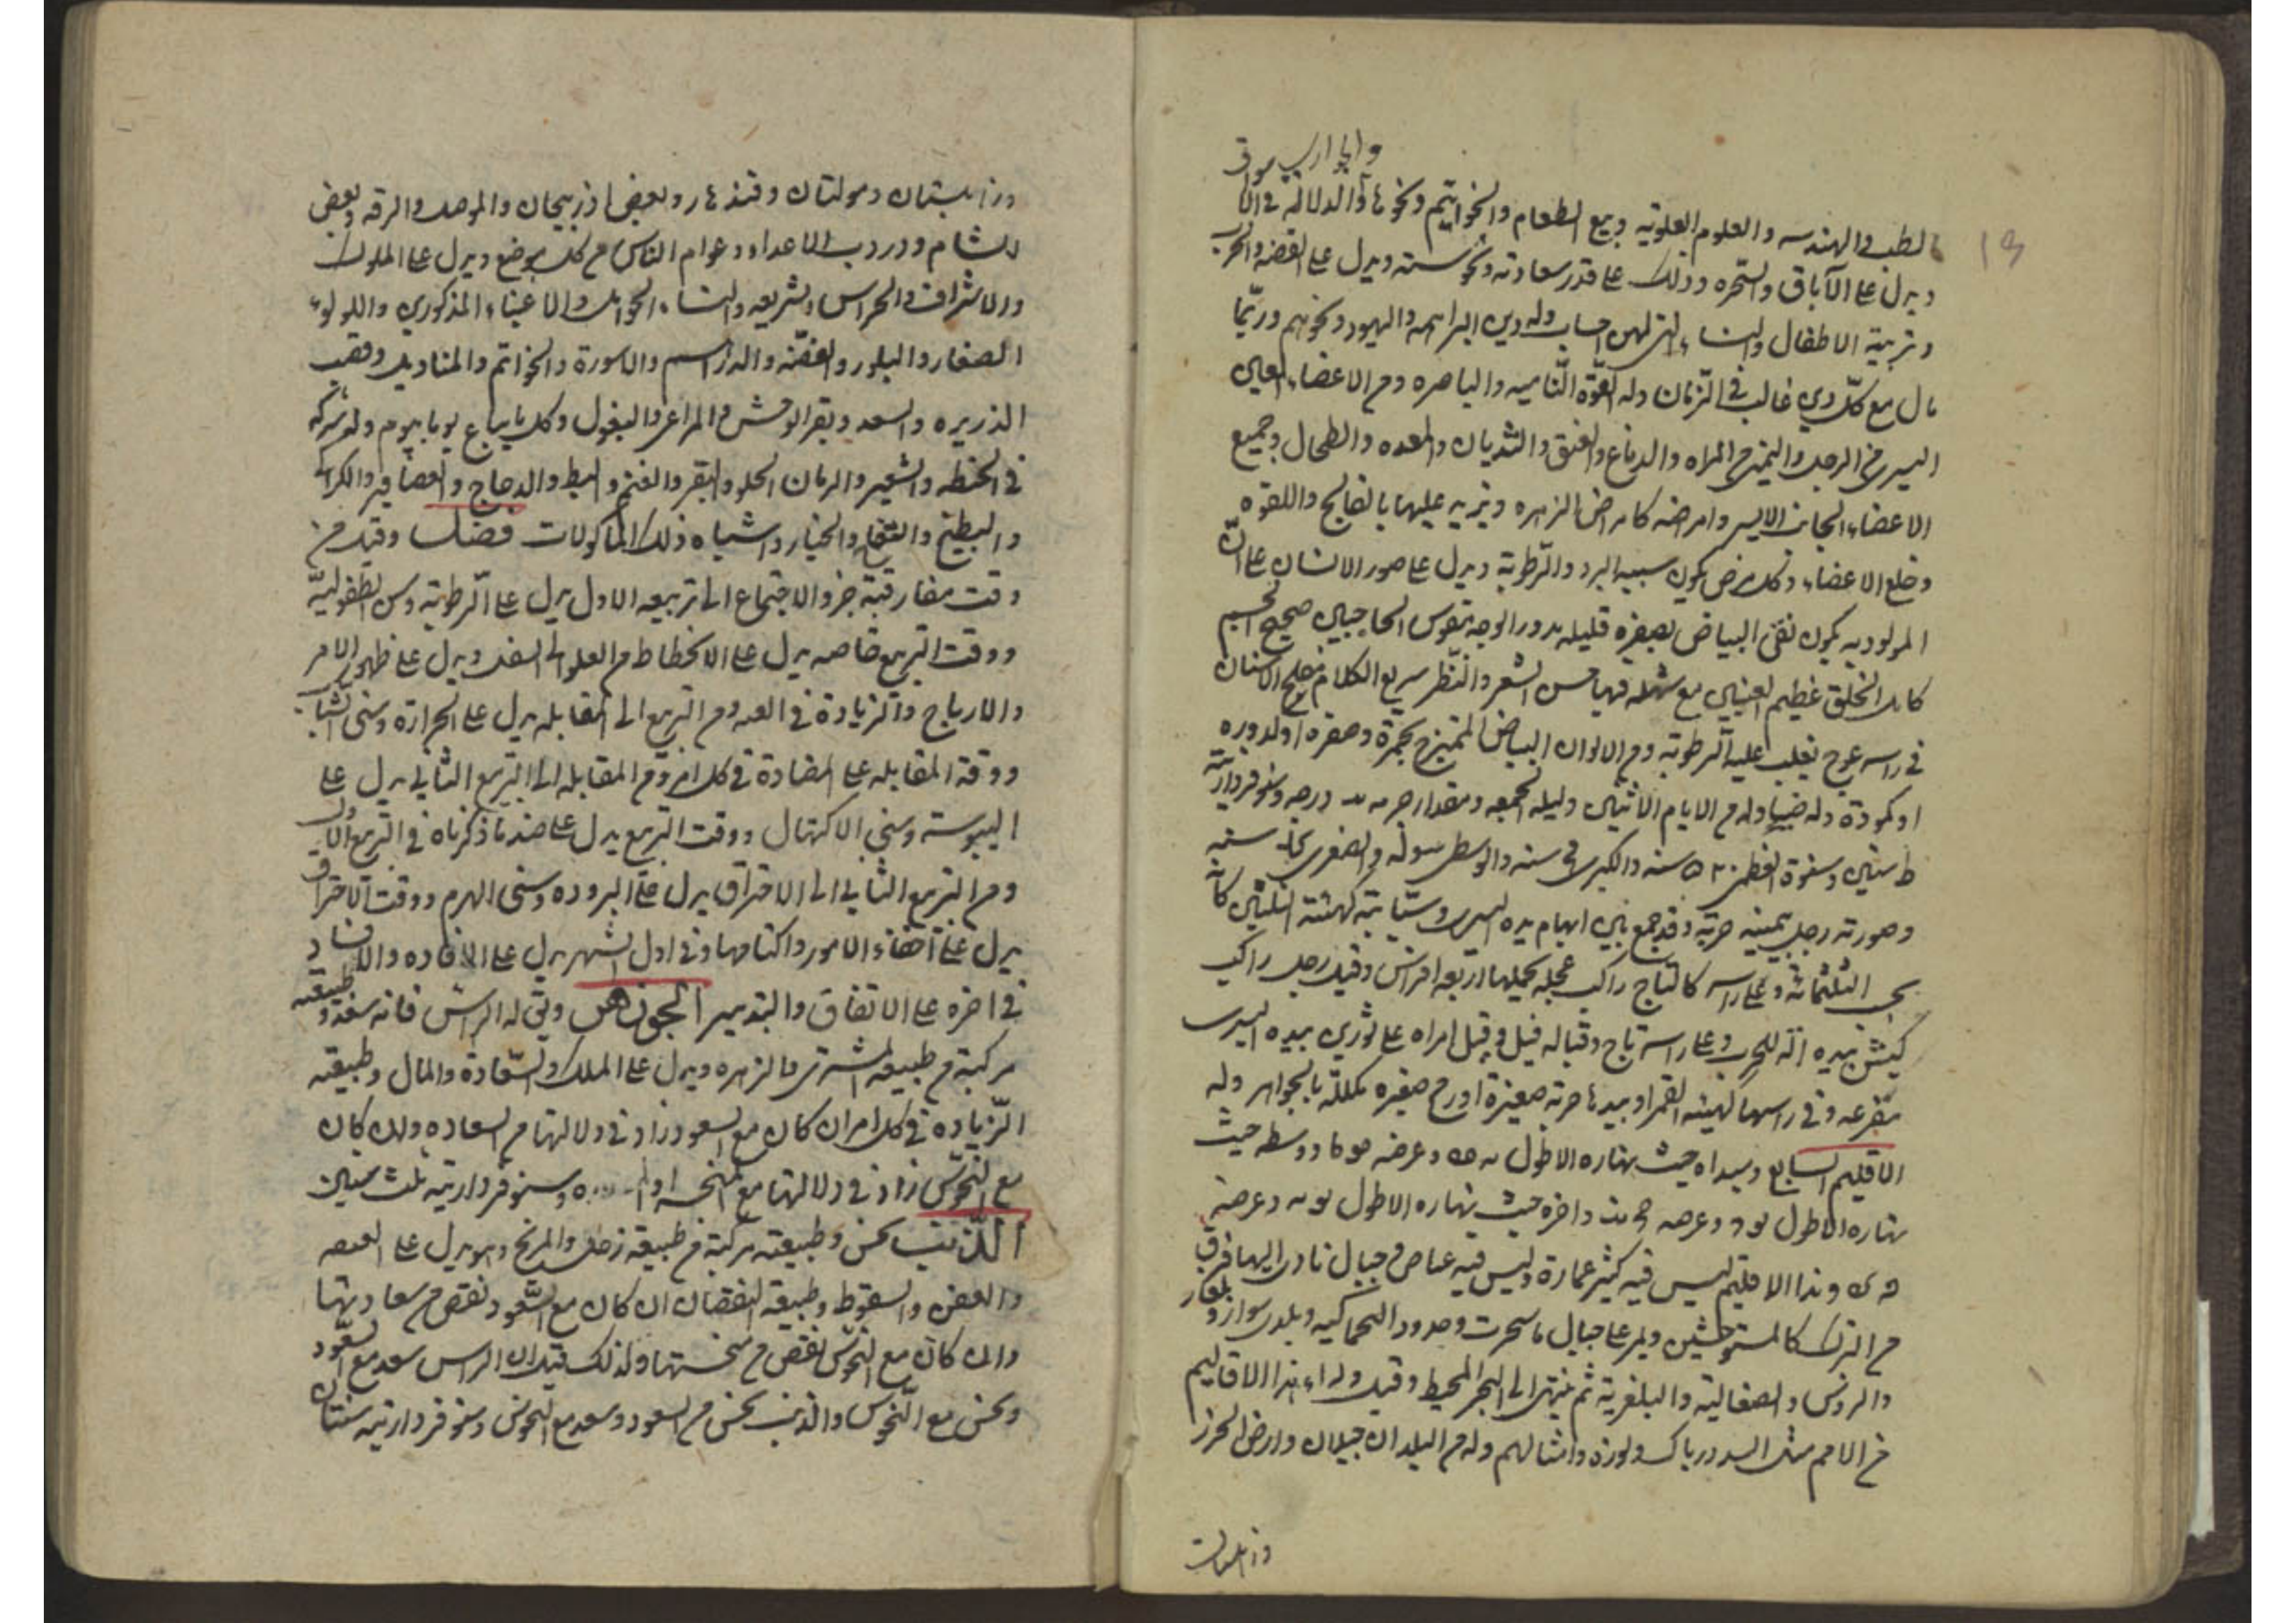 19
كالطب والهندسه والعلوم العلويه وبيع الطعام والخواتيم ونحوها والدلاله في
ويدل على الآباق والسحره وذلك على قدر سعادته ونحوسته ويدل على القضه والحرب
وتربية الاطفال والنساء التي لهن حساب وله دين البراهمه واليهود ونحوهم وربما
مال مع كل دين غالب في الزمان وله القوة الناميه والباصره ومن الاعضاء العين
اليسرى من الرجل واليمنى من المراه والدماغ والعنق والثديان والمعده والطحال وجميع
الاعضاء الجانب الايسر وامراضه كامراض الزهره وتزيد عليها بالفالج واللقوه
وخلع الاعضاء وكل مرض يكون سببه البرد والرطوبة ويدل على صور الانسان على ان
المولود به يكون نقي البياض بصفره قليله مدور الوجه مقوس الحاجبين صحيح الجسم
كامل الخلق عظيم العينين مع شهله فيها حسن الشعر والنظر سريع الكلام مفلج الاسنان
في راسه عوج يغلب عليه الرطوبة ومن الالوان البياض الممتزج بحمرة وصفره اوله دوره
او كمودة وله ضياء وله من الايام الاثنين وليله الجمعه ومقدار جرمه درجه وسنو فرداريته
ط سنين وسنوه العظمى ٥٢٠ سنه والكبرى قح سنه والوسطى والصغرى كه سنه
وصورته رجل بيمينه حربة وقد جمع بين ابهام يده اليسرى وسبابته كهيئة الثلثين كانه
يحسب الثلثمائة وعلى راسه كالتاج راكب عجله يحملها اربعه افراس وقيل رجل راكب
كبش بيده آله للحرب وعلى راسه تاج وقباله فيل وقيل امراه على ثورين بيده اليسرى
مقرعه وفي راسها كهيئة القمر او بيدها حربة صغيرة او رمح صغيره مكللة بالجواهر وله
الاقليم السابع ومبداه حيث نهاره الاطول يه مه وعرضه مو نا ووسطه حيث
نهاره الاطول يو وعرضه مح نب واخره حيث نهاره الاطول يو يه وعرضه
ن ى وهذا الاقليم ليس فيه كثير عمارة وليس فيه غياض وجبال تاوى اليها فرق
من الترك كالمستوحشين ويمر على جبال باسحرت وحدود البجناكيه وبلدى سوار وبلغار
والروس والصقالبه والبلغرية ثم ينتهى الى البحر المحيط وقيل وراء هذا الاقاليم
من الامم مثل ايسو وورنك ويوره وامثالهم وله من البلدان جيلان وارض الخزر
وزابلستان
وزابلستان ومولتان وقندهار وبعض اذربيجان والموصل والرقه وبعض
الشام ودردب الاعداد وعوام الناس من كل موضع ويدل على الملوك
والاشراف والحراس والشريعه والنساء الحوامل والاغنياء المذكورين واللؤلؤ
الصغار والبلور والفضة والدراهم والاسورة والخواتم والمناديل وقصب
الذريره والسعد وبقر الوحش والمراعى والبغول وكل ما يباع يوما بيوم وله شركه
في الحنطه والشعير والرمان الحلو والبقر والغنم والبط والدجاج والعصافير والكراكى
والبطيخ والقثاء والخيار واشباه ذلك من الماكولات فصل وقيل من
وقت مفارقته جزو الاجتماع الى تربيعه الاول يدل على الرطوبة وسن الطفولية
ووقت التربيع خاصه يدل على الانحطاط من العلو الى السفل ويدل على ظهور الامر
والارباح والزيادة في العدد ومن التربيع الى المقابله يدل على الحرارة وسنى الشباب
ووقت المقابله على المضادة في كل امر ومن المقابله الى التربيع الثاني يدل على
اليبوسة وسنى الاكتهال ووقت التربيع يدل على ضد ما ذكرناه في التربيع الاول
ومن التربيع الثاني الى الاحتراق يدل على البروده وسنى الهرم ووقت الاحتراق
يدل على اخفاء الامور واكتامها وفي اول الشهر يدل على الافاده والافساد
في اخره على الاتفاق والتدبير الجوزهر ويقال له الراس فانه سعد وطبيعته
مركبة من طبيعه المشترى والزهره ويدل على الملك والسعادة والمال وطبيعته
الزياده في كل امر ان كان مع السعود زاد في دلالتها من السعاده وان كان
مع النحوس زاد في دلالتها مع المنحسه وسنو فرداريته ثلث سنين
الذنب نحس وطبيعته مركبة من طبيعه زحل والمريخ وهو يدل على
والسقوط وطبيعته النقصان ان كان مع السعود نقص من سعادتها
وان كان مع النحوس نقص من منحستها ولذلك قيل ان الراس سعد مع السعود
ونحس مع النحوس والذنب نحس من السعود وسعد مع النحوس وسنو فرداريته سنتان